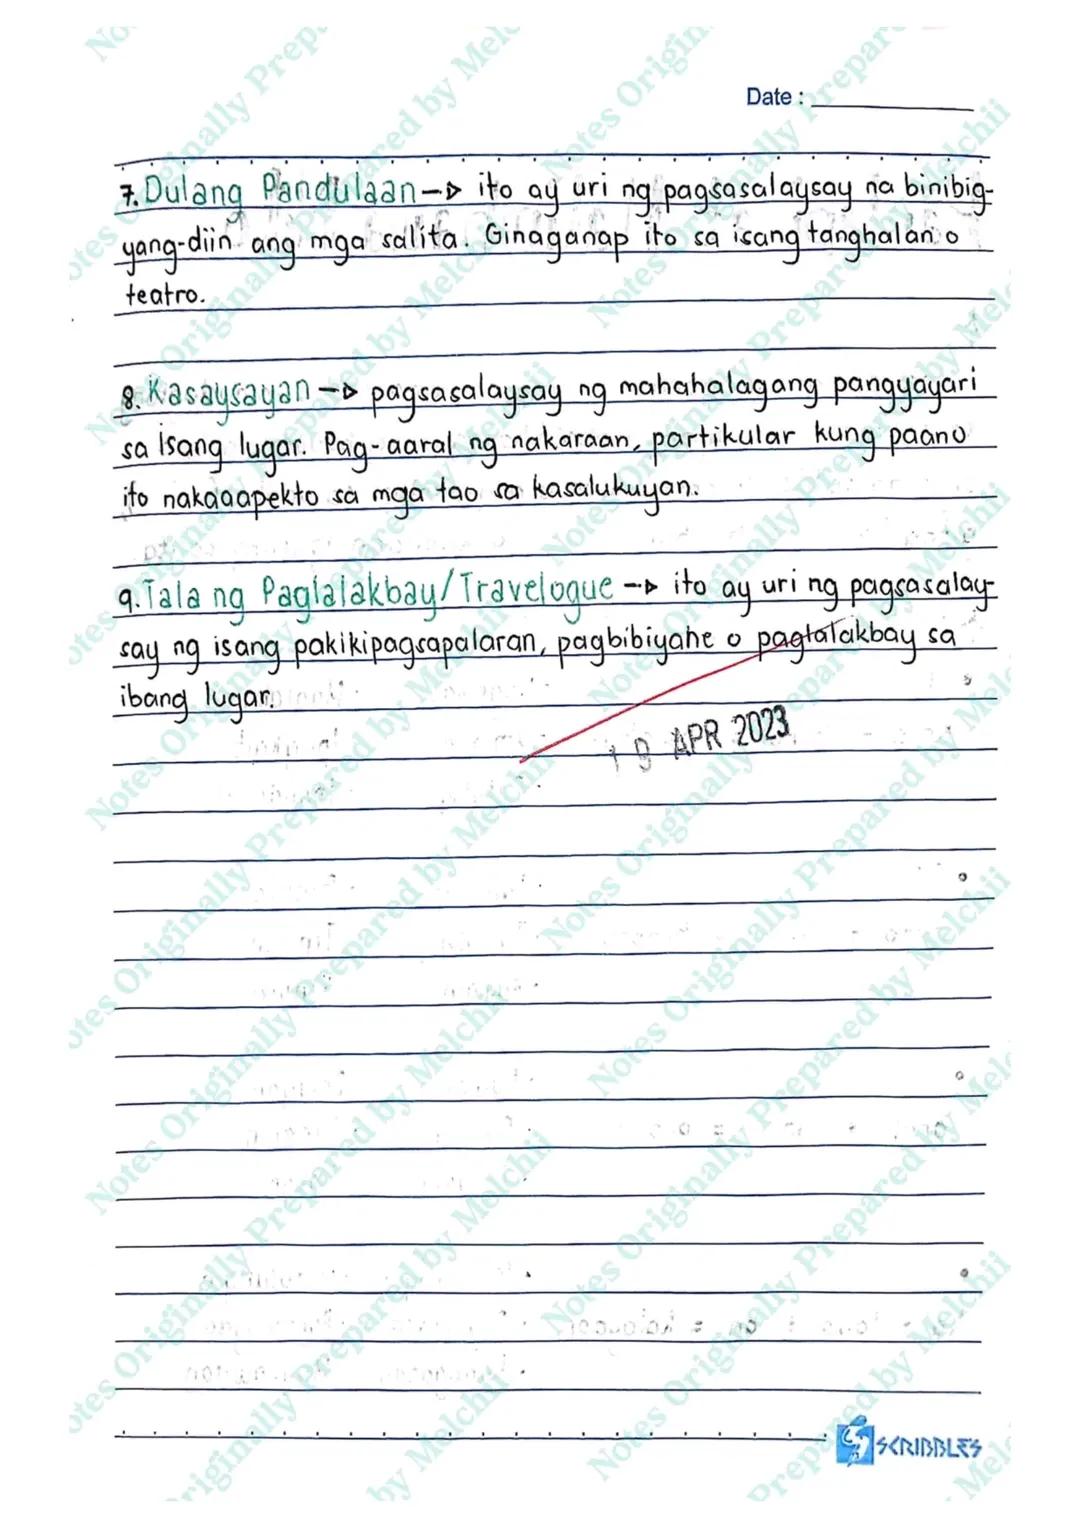 Date :
7. Dulang Pandulaan → ito ay uri ng pagsasalaysay na binibig-
yang-diin ang mga salita. Ginaganap ito sa isang tanghalan o
teatro.
8. Kasaysayan → pagsasalaysay ng mahahalagang pangyayari
sa isang lugar. Pag-aaral ng nakaraan, partikular kung paano
ito nakaaapekto sa mga tao sa kasalukuyan.
9. Tala ng Paglalakbay/Travelogue → ito ay uri ng pagsasalay-
say ng isang pakikipagsapalaran, pagbibiyahe o paglalakbay sa
ibang lugar.
19 APR 2023
SCRIBBLES
Notes Originally Prepared by Melchii